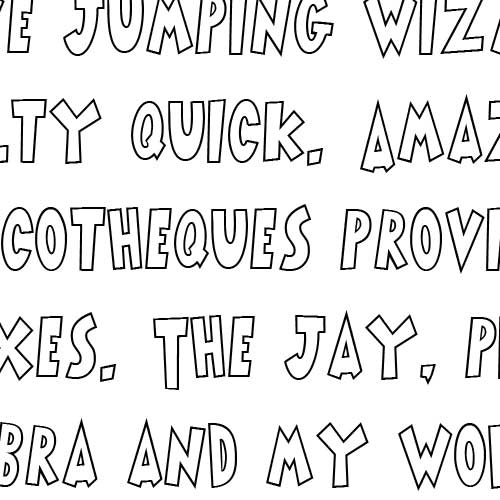 VE JUMPING WIZA
LTY QUICK. AMAZ
COTHEQUES PROVI
XES. THE JAY, P
BRA AND MY WO